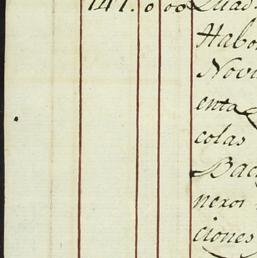 141. 0 00 Quad
Habo
Novi
enta
colas
Bac
nexos
ciones